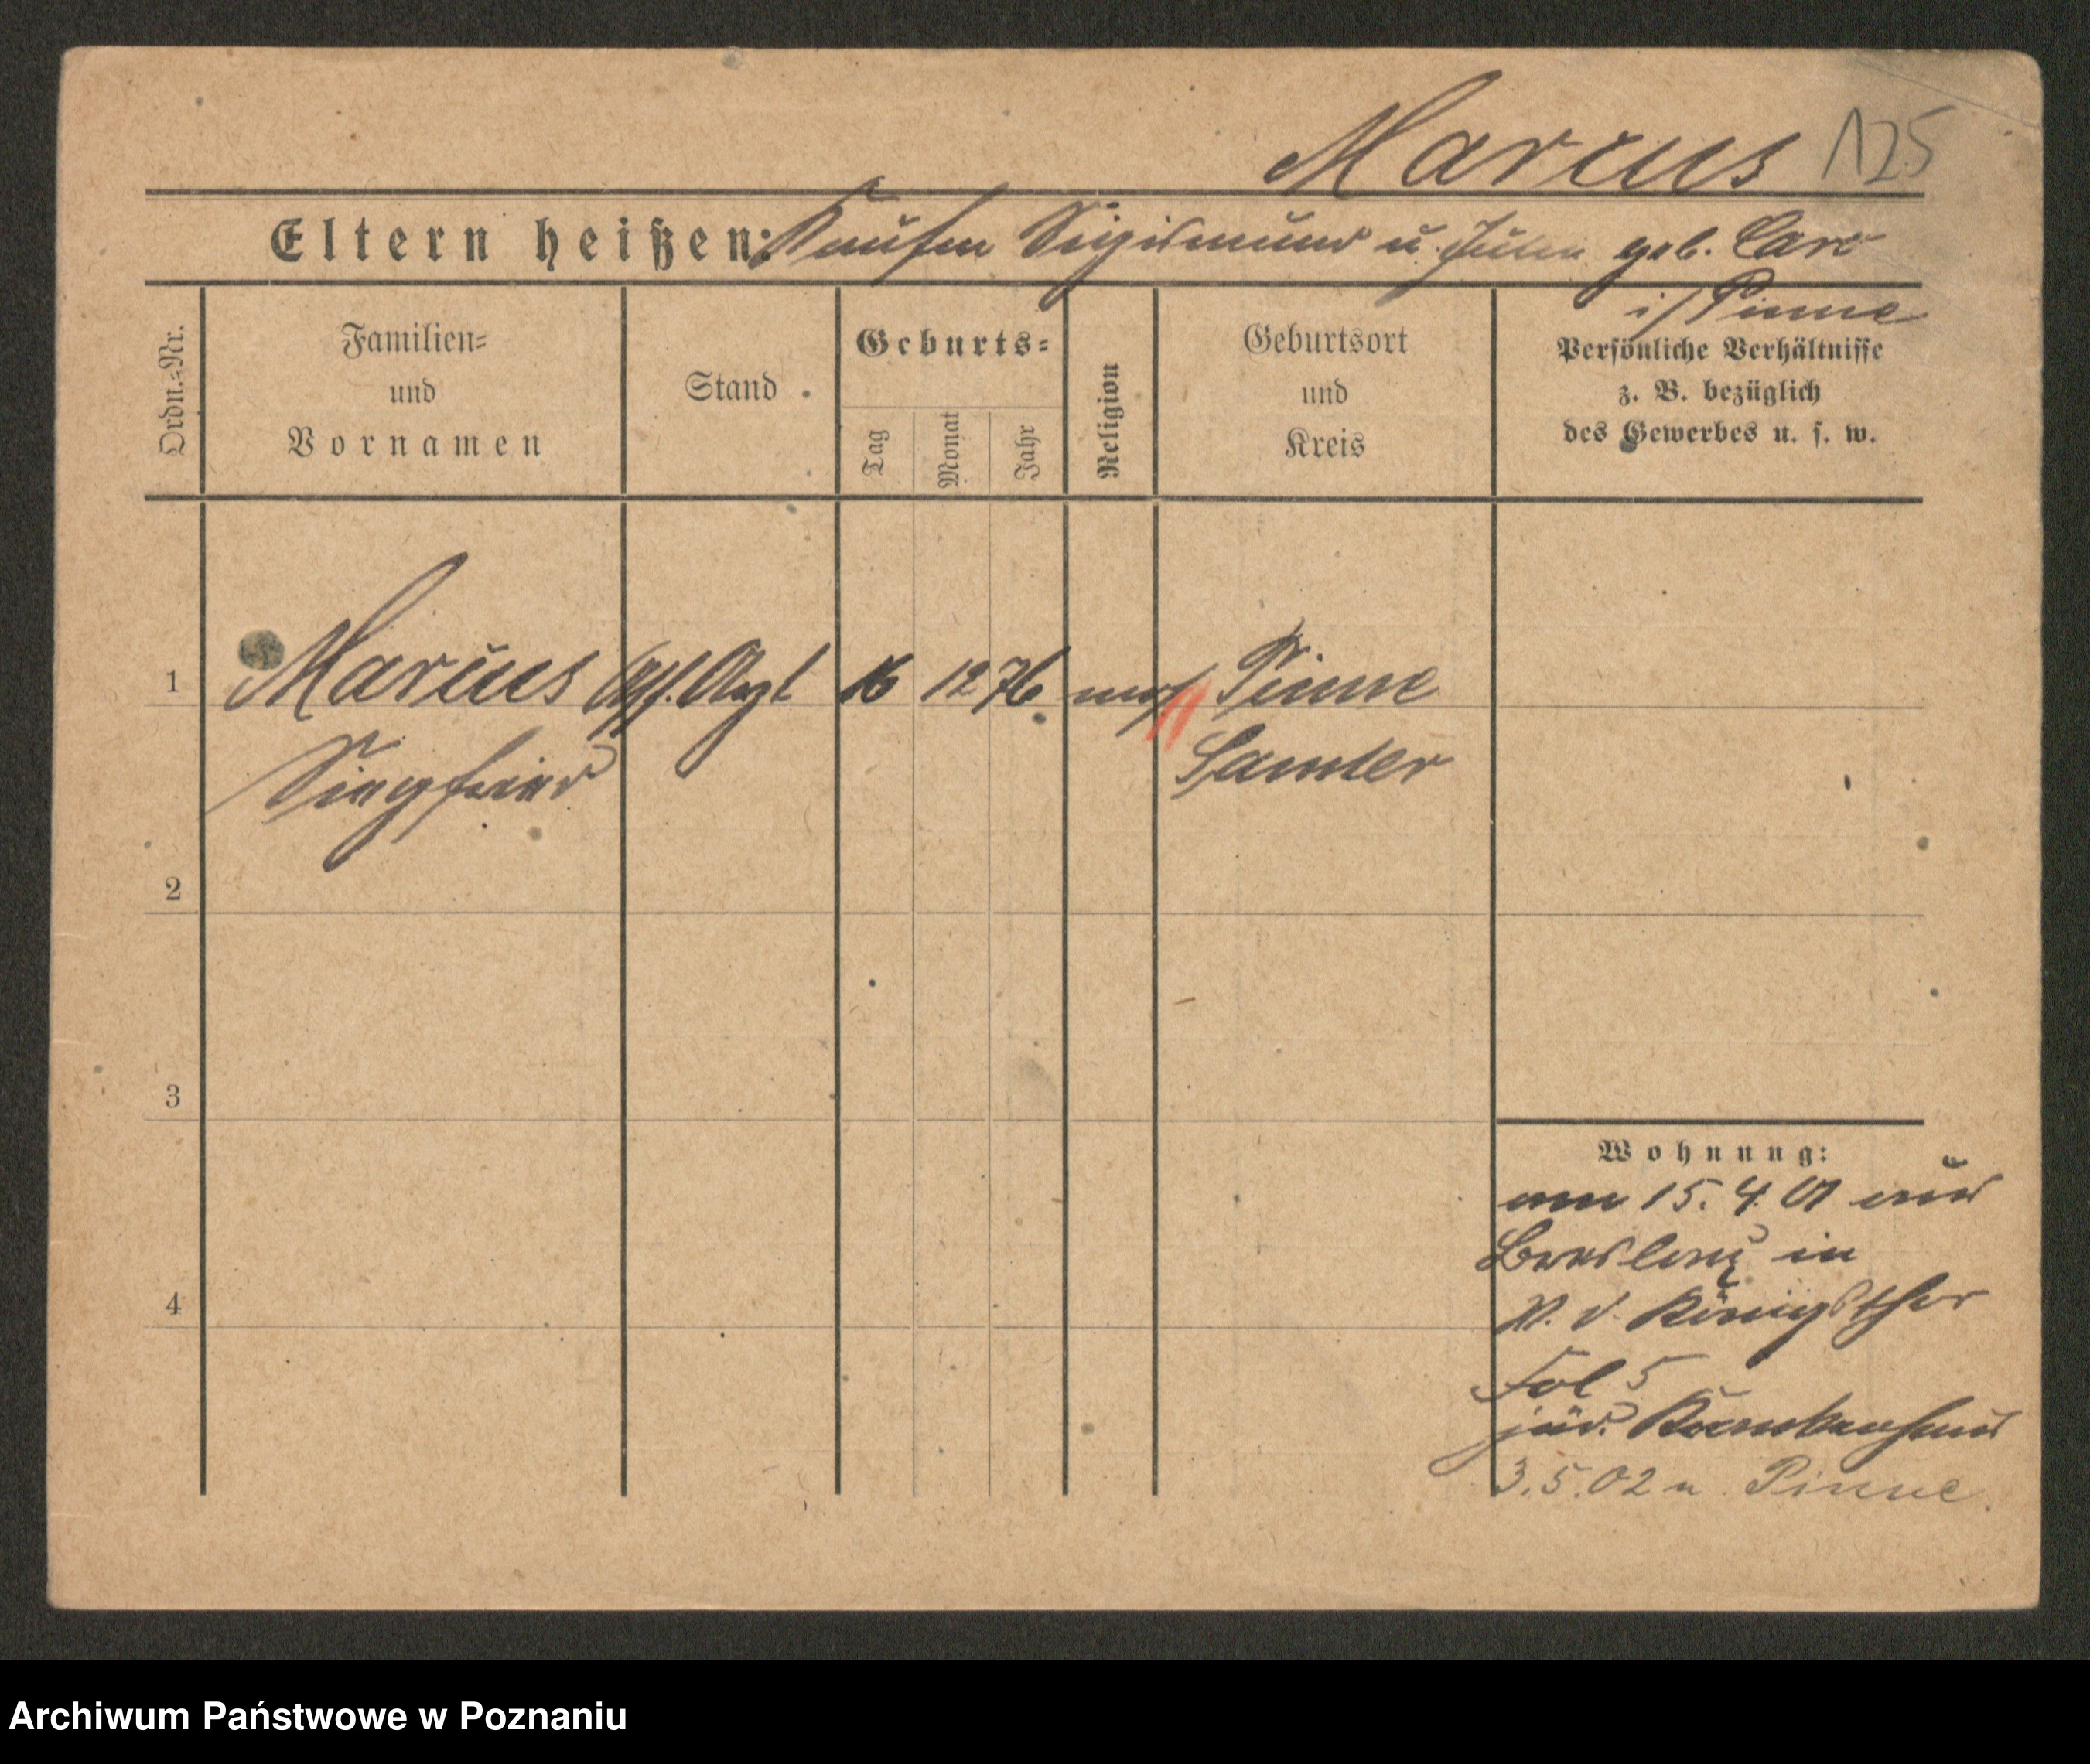 Marcus 125
Eltern heißen: Kaufm Sigismund u. Julie geb. Caro
i/ Pinne
Ordn.=Nr.
Familien=
und
Vornamen
Stand
Geburts=
Tag
Monat
Jahr
Religion
Geburtsort
und
Kreis
Persönliche Verhältnisse
z. B. bezüglich
des Gewerbes u. s. w.
1 Marcus Ass. Arzt 16 12 76 mos Pinne
Siegfried Samter
2
3
4
Wohnung:
am 15. 4. 01 aus
Breslau in
Königsthor
Fol 5
jüd. Krankenhaus
3.5.02 n. Pinne.
Archiwum Państwowe w Poznaniu